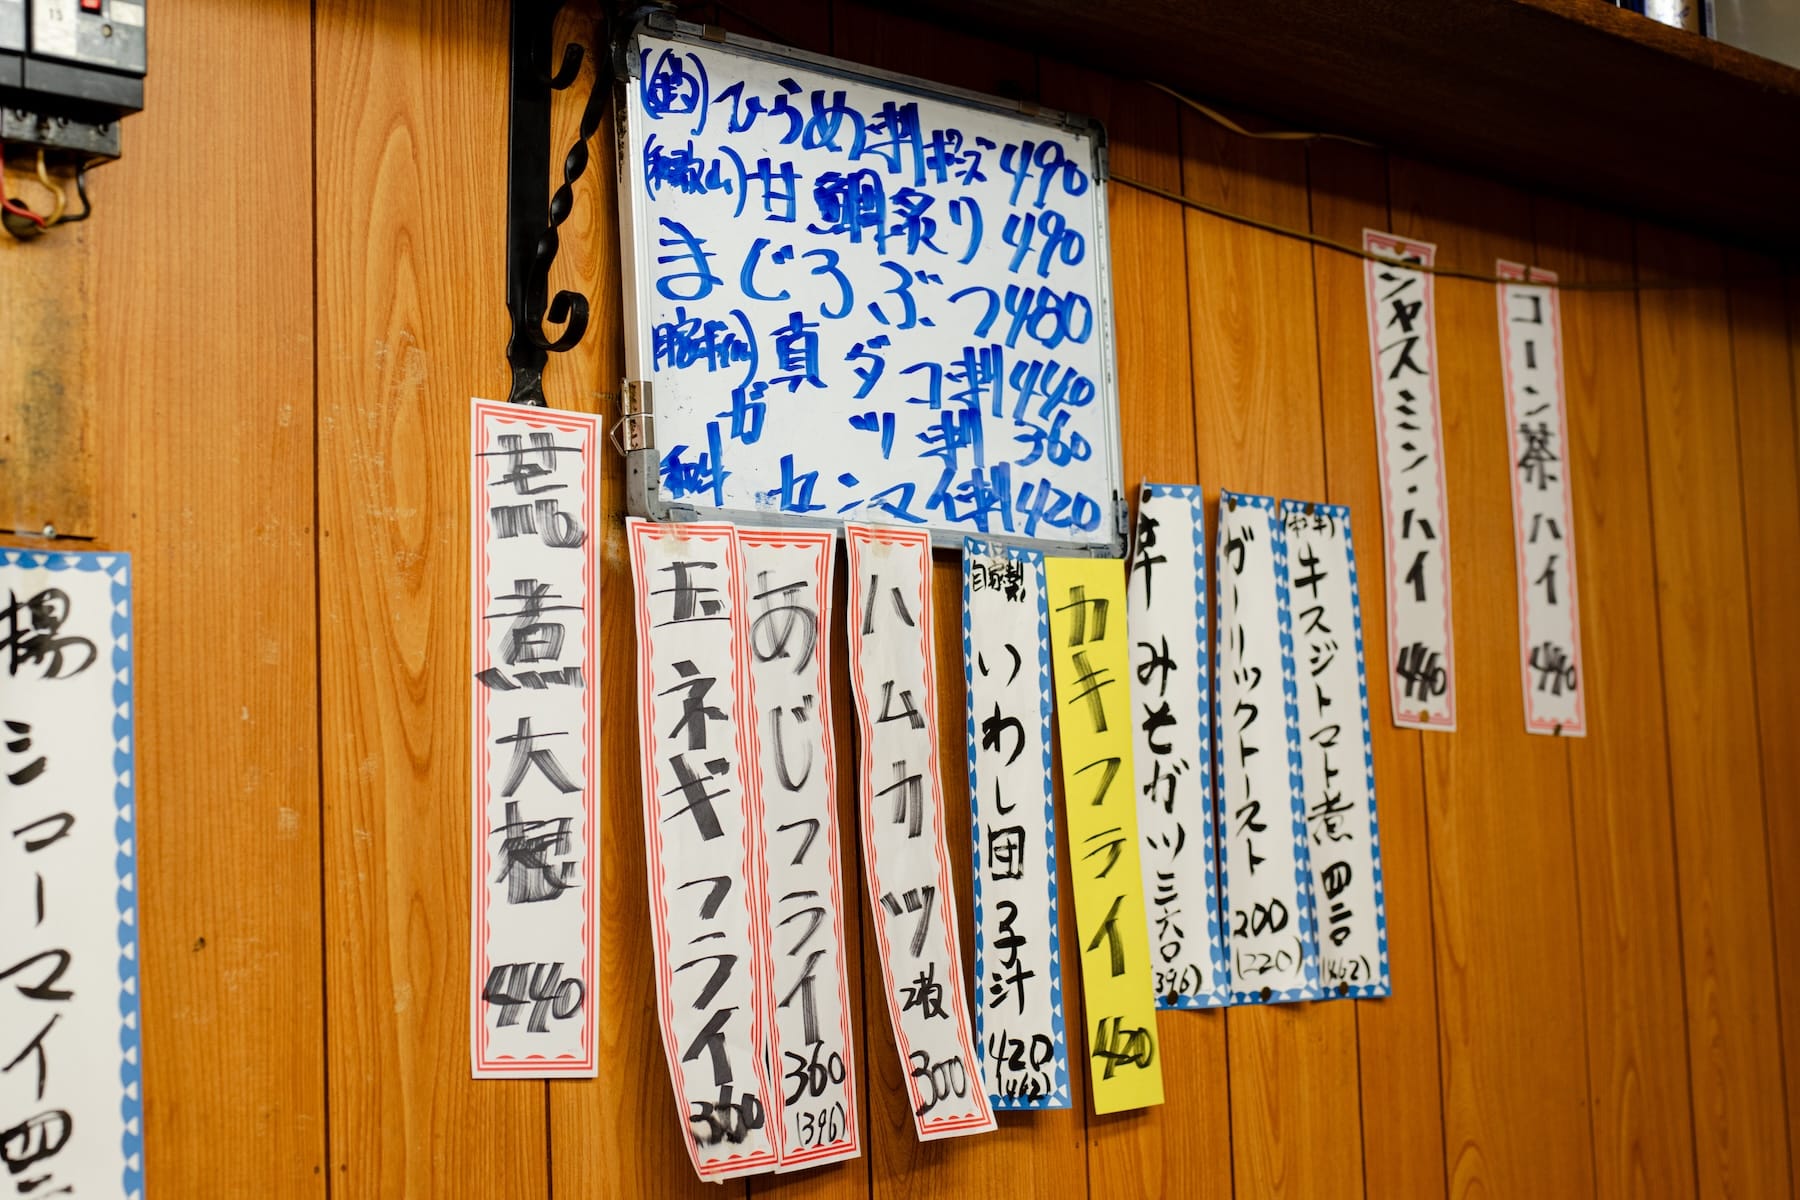 ひらめ刺ポンズ 490
(和歌山)甘鯛炙り 490
まじろぶつ 480
真ダコ刺 440
ガツ刺 360
和牛 センマイ刺 420
煮大根 440
玉ネギフライ
あじフライ 360 (396)
ハムカツ 2枚 300
自家製 いわし団子汁 420 (462)
カキフライ 420
みそガツ 三六〇 (396)
ガーリックトースト 200 (220)
(和牛) 牛スジトマト煮 四二〇 (462)
ジャスミン・ハイ 440
コーン茶ハイ 440
揚シューマイ 四二
15